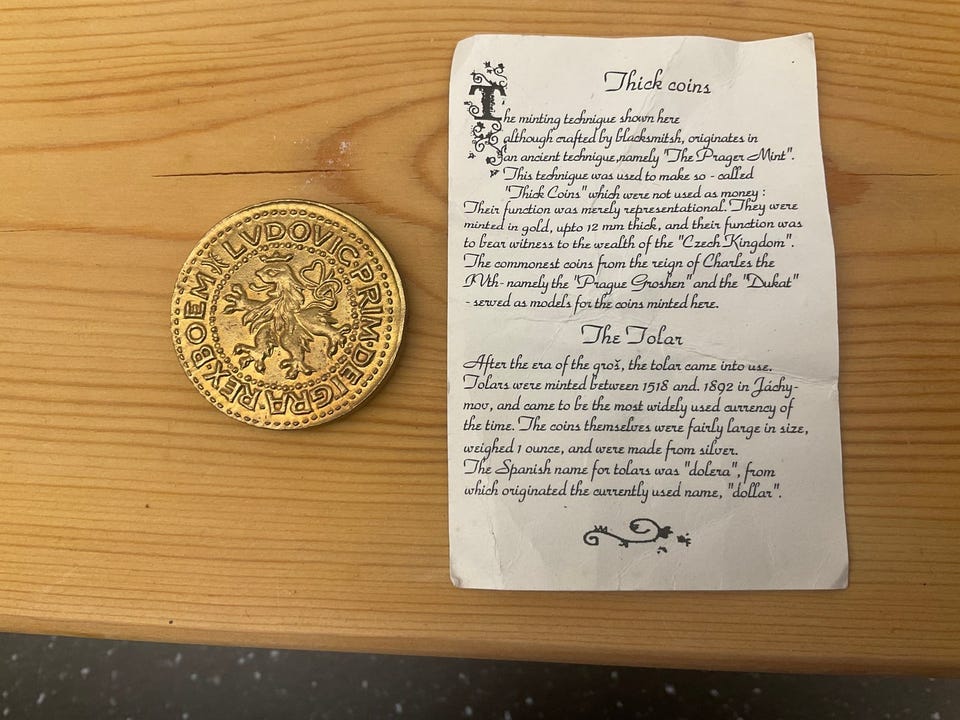 LVDOVIC·PRIM·DEI GRA·REX·BOEM
Thick coins
The minting technique shown here
although crafted by blacksmitsh, originates in
an ancient technique,namely "The Prager Mint".
This technique was used to make so - called
"Thick Coins" which were not used as money :
Their function was merely representational. They were
minted in gold, upto 12 mm thick, and their function was
to bear witness to the wealth of the "Czech Kingdom".
The commonest coins from the reign of Charles the
IVth- namely the "Prague Groshen" and the "Dukat"
- served as models for the coins minted here.
The Tolar
After the era of the groš, the tolar came into use.
Tolars were minted between 1518 and. 1892 in Jáchy-
mov, and came to be the most widely used currency of
the time. The coins themselves were fairly large in size,
weighed 1 ounce, and were made from silver.
The Spanish name for tolars was "dolera", from
which originated the currently used name, "dollar".